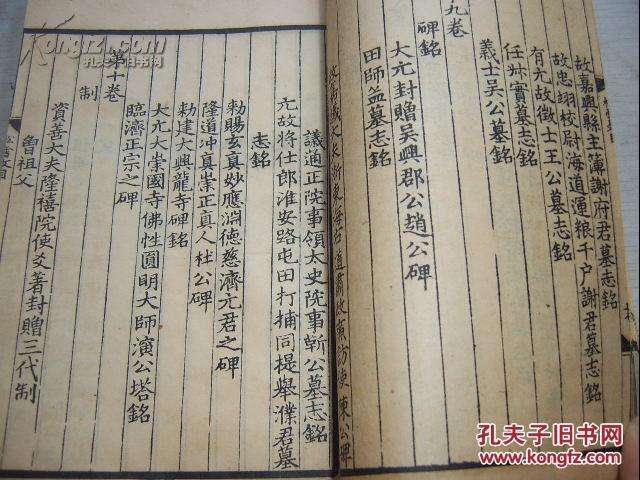 故嘉興縣主簿謝府君墓志銘
故忠翊校尉海道運粮千户謝君墓志銘
有元故徵士王公墓志銘
任叔實墓志銘
義士吴公墓銘
九卷
碑銘
大元封贈吴興郡公趙公碑
田師孟墓志銘
議通正院事領太史院事靳公墓志銘
元故將仕郎淮安路屯田打捕同提舉濮君墓
志銘
勑賜玄真妙應淵德慈濟元君之碑
隆道冲真崇正真人杜公碑
勑建大興龍寺碑銘
大元大崇國寺佛性圓明大師演公塔銘
臨濟正宗之碑
第十卷
制
資善大夫隆禧院使爻著封贈三代制
曾祖父
孔夫子旧书网
www.kongfz.com